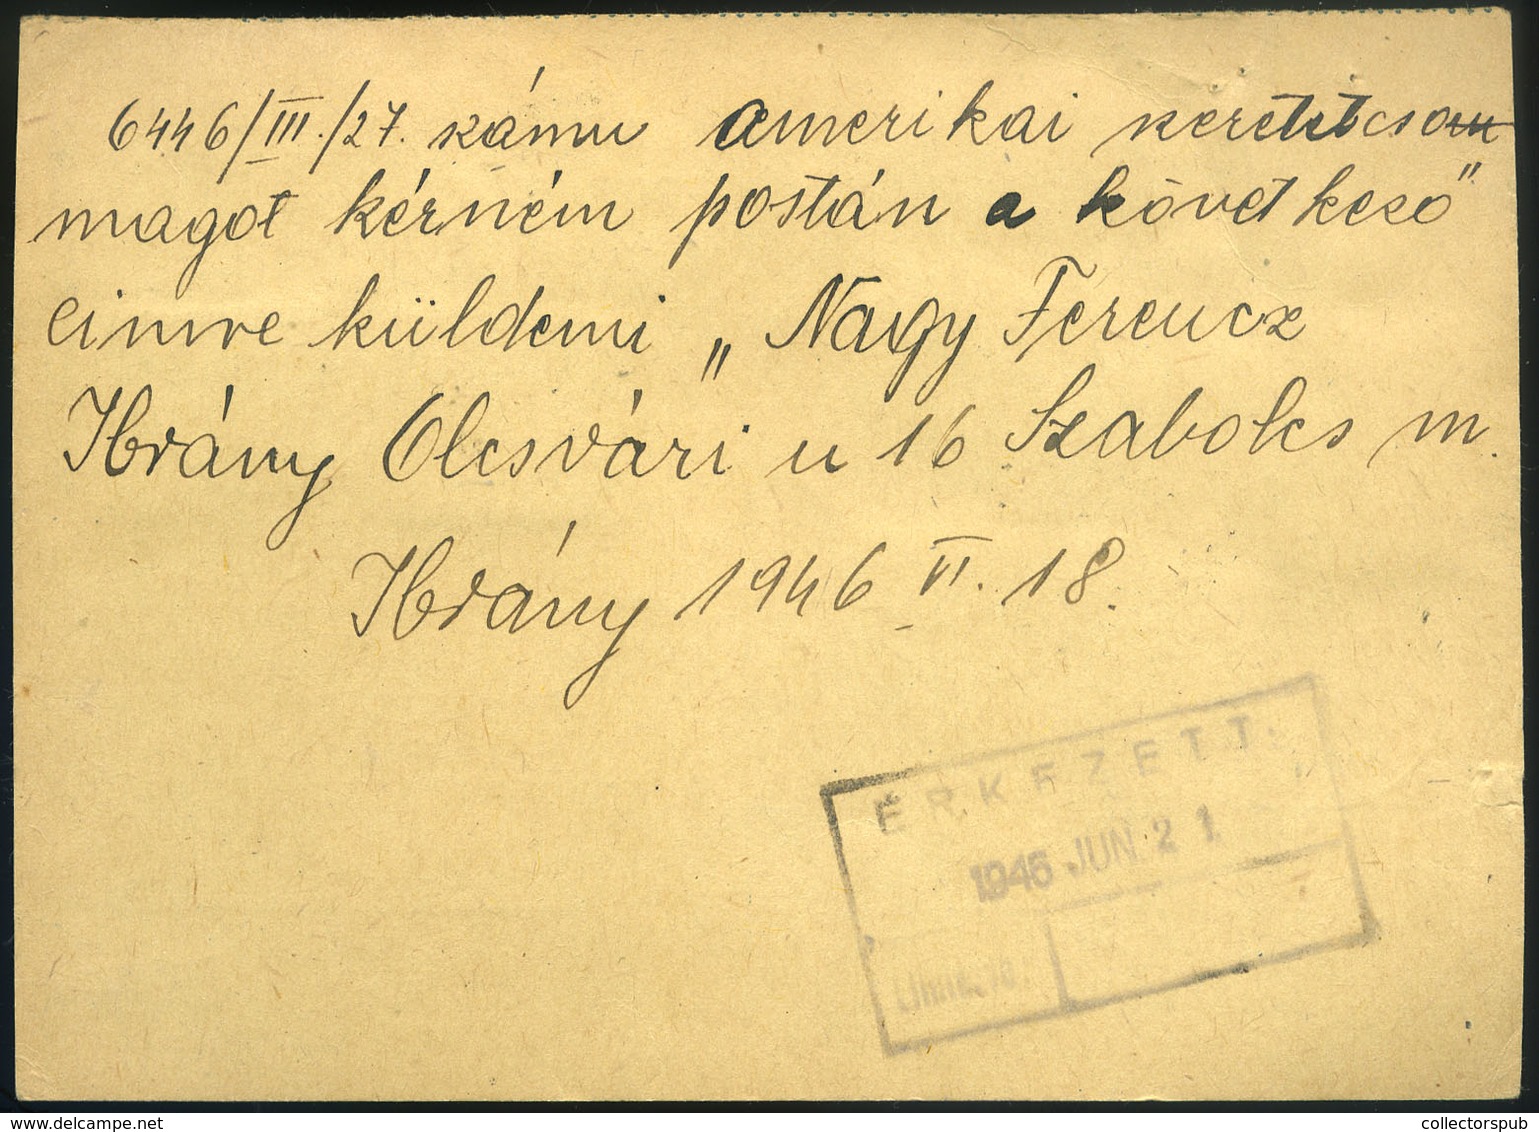 6446/III./27. számu amerikai szeretetcso
magot kérném postán a következő
cimre küldeni „Nagy Ferencz
Ibrány Olcsvári u 16 Szabolcs m.
Ibrány 1946 VI. 18.
ÉRKEZETT.
1946 JUN. 21
delcampe.net
collectorspub